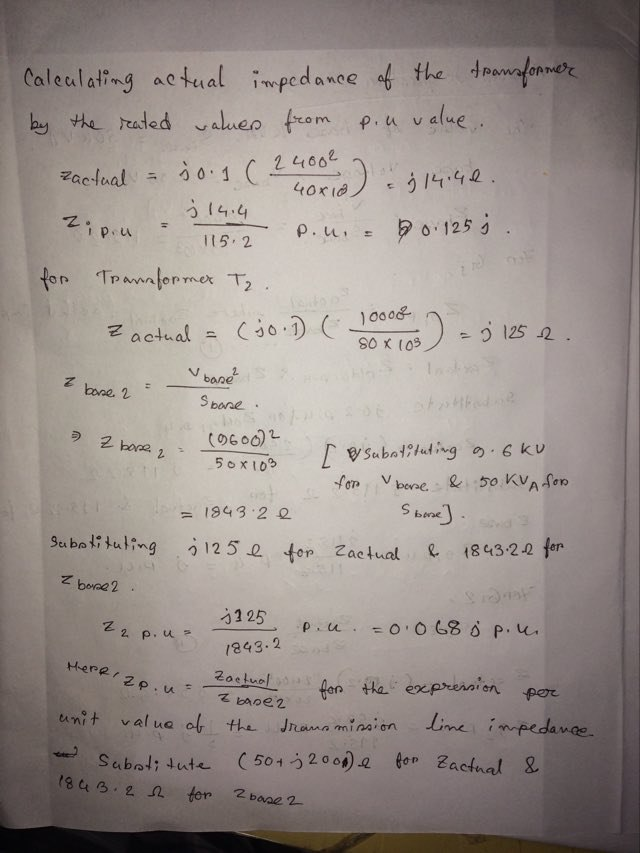 Calculating actual impedance of the transformer
by the rated values from p.u value.
Zactual = j0.1 ( 2400² / 40×10³ ) = j14.4Ω.
Z i p.u = j14.4 / 115.2 p.u. = 0.125j.
for Transformer T₂.
Z actual = (j0.1) ( 10000² / 80×10³ ) = j125 Ω.
Z base 2 = V base² / S base.
⇒ Z base 2 = (9600)² / 50×10³ [ Substituting 9.6 KV
for V base & 50 KVA for
S base].
= 1843.2 Ω
Substituting j125Ω for Zactual & 1843.2Ω for
Z base2.
Z₂ p.u = j125 / 1843.2 p.u. = 0.068j p.u.
Here, Z p.u = Zactual / Z base2 for the expression per
unit value of the transmission line impedance
Substitute (50+j200)Ω for Zactual &
1843.2 Ω for Z base2